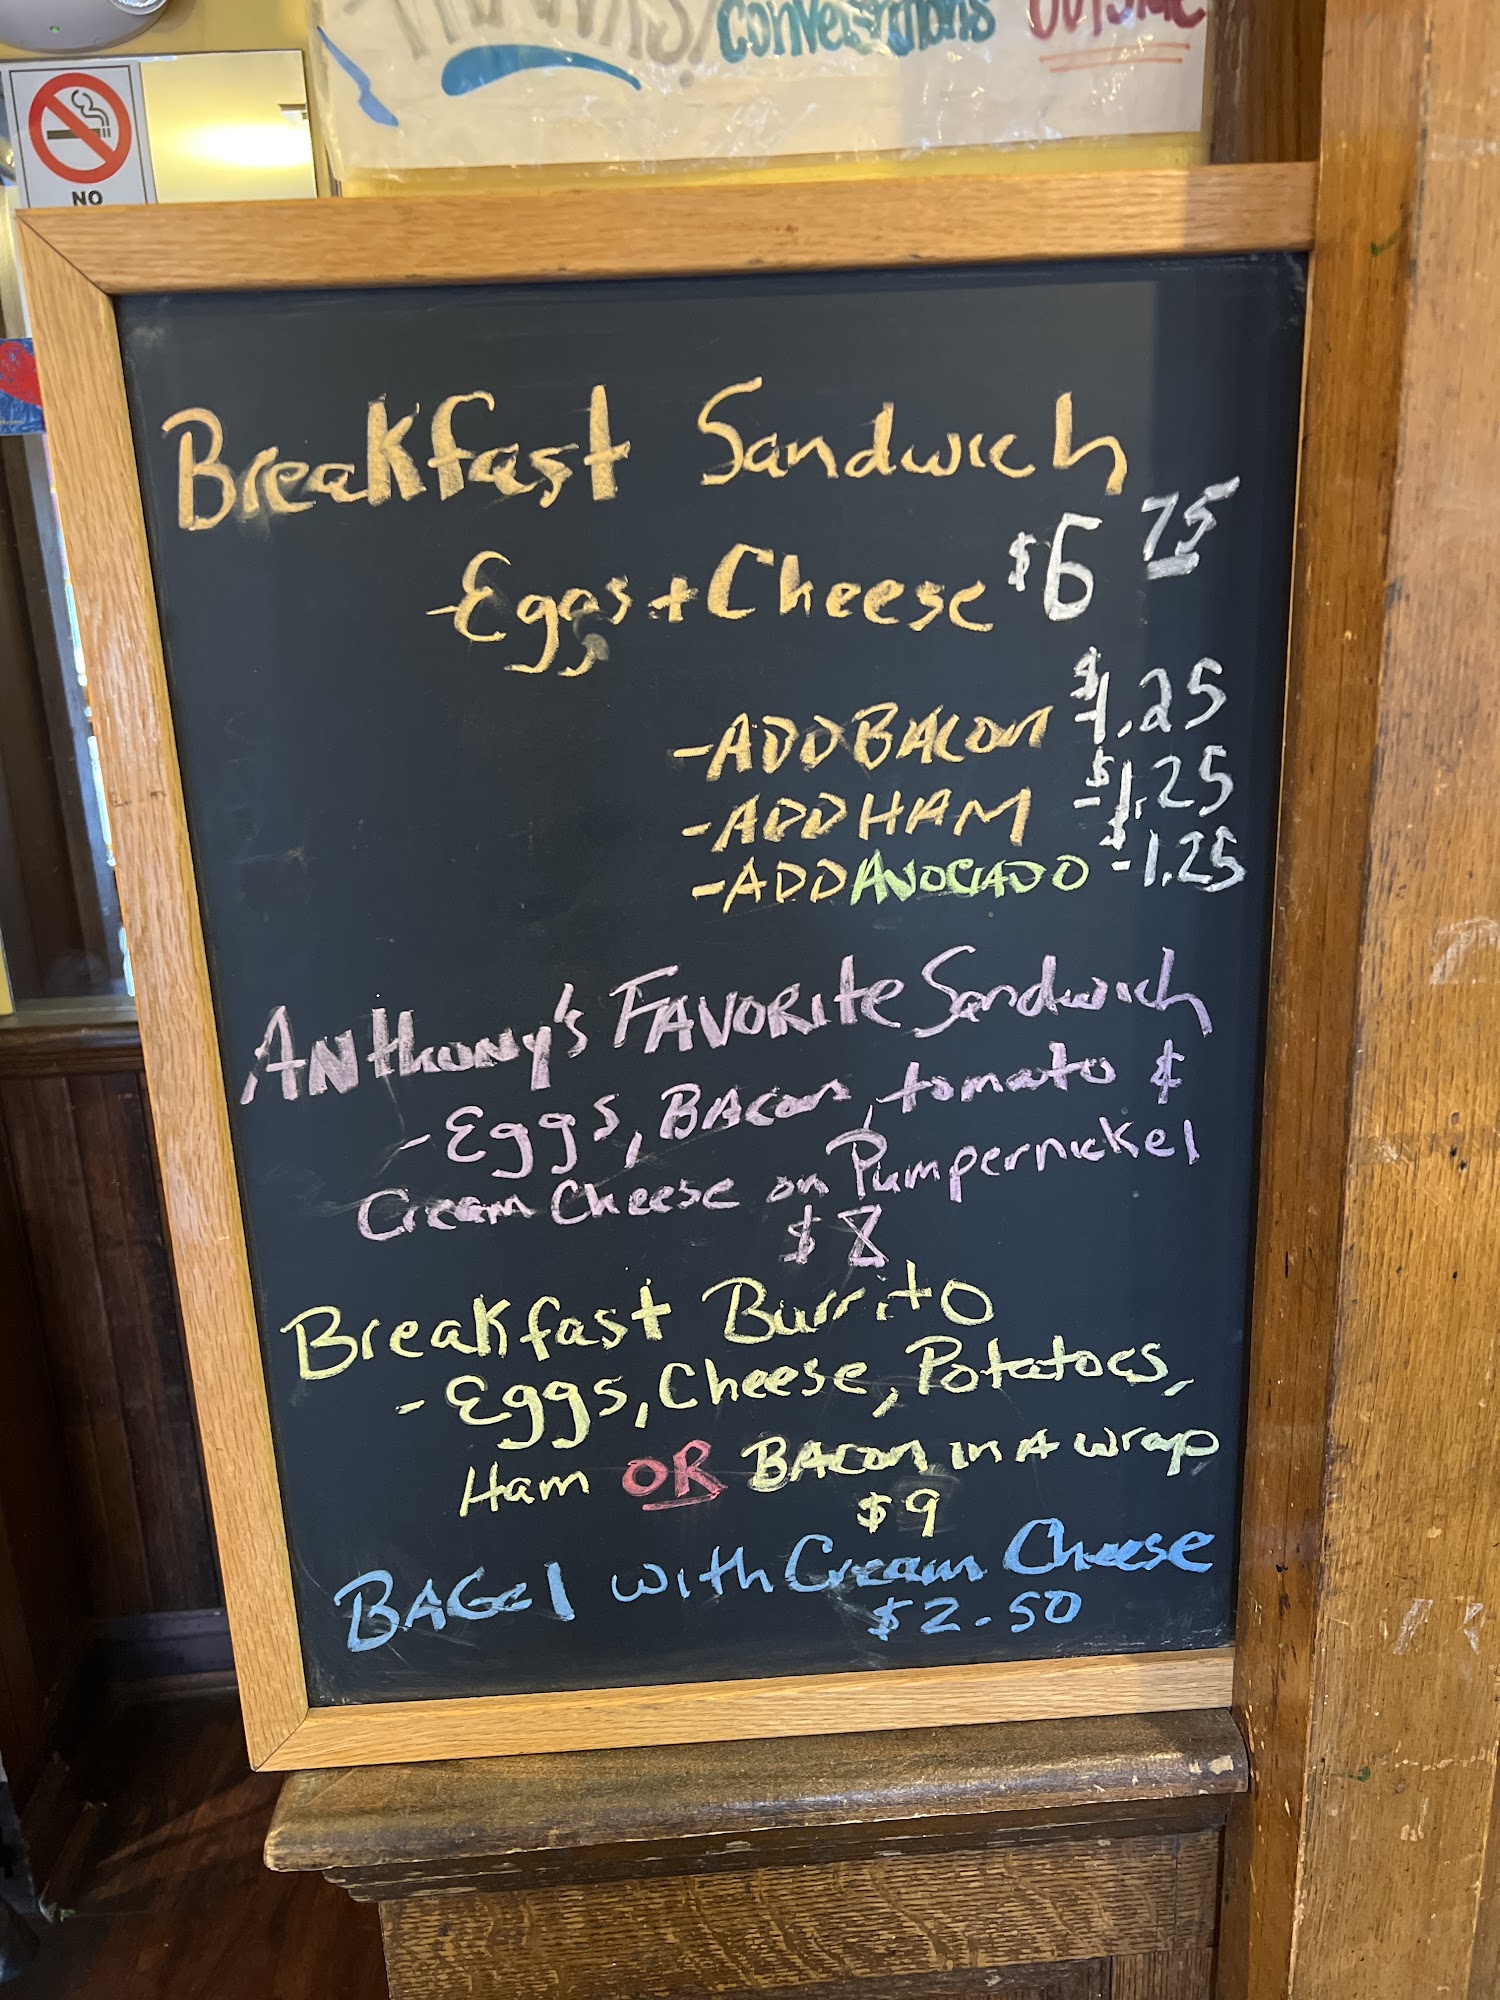 THANKS!
Conversations
OUTSIDE
NO
Breakfast Sandwich
-Eggs + Cheese $6 75
-ADD BACON $1.25
-ADD HAM $1.25
-ADD AVOCADO $1.25
ANthony's FAVORIte Sandwich
-Eggs, BAcon, tomato &
Cream Cheese on Pumpernickel
$8
Breakfast Burrito
-Eggs, Cheese, Potatoes,
Ham OR BACon in A wrap
$9
BAGel with Cream Cheese
$2.50